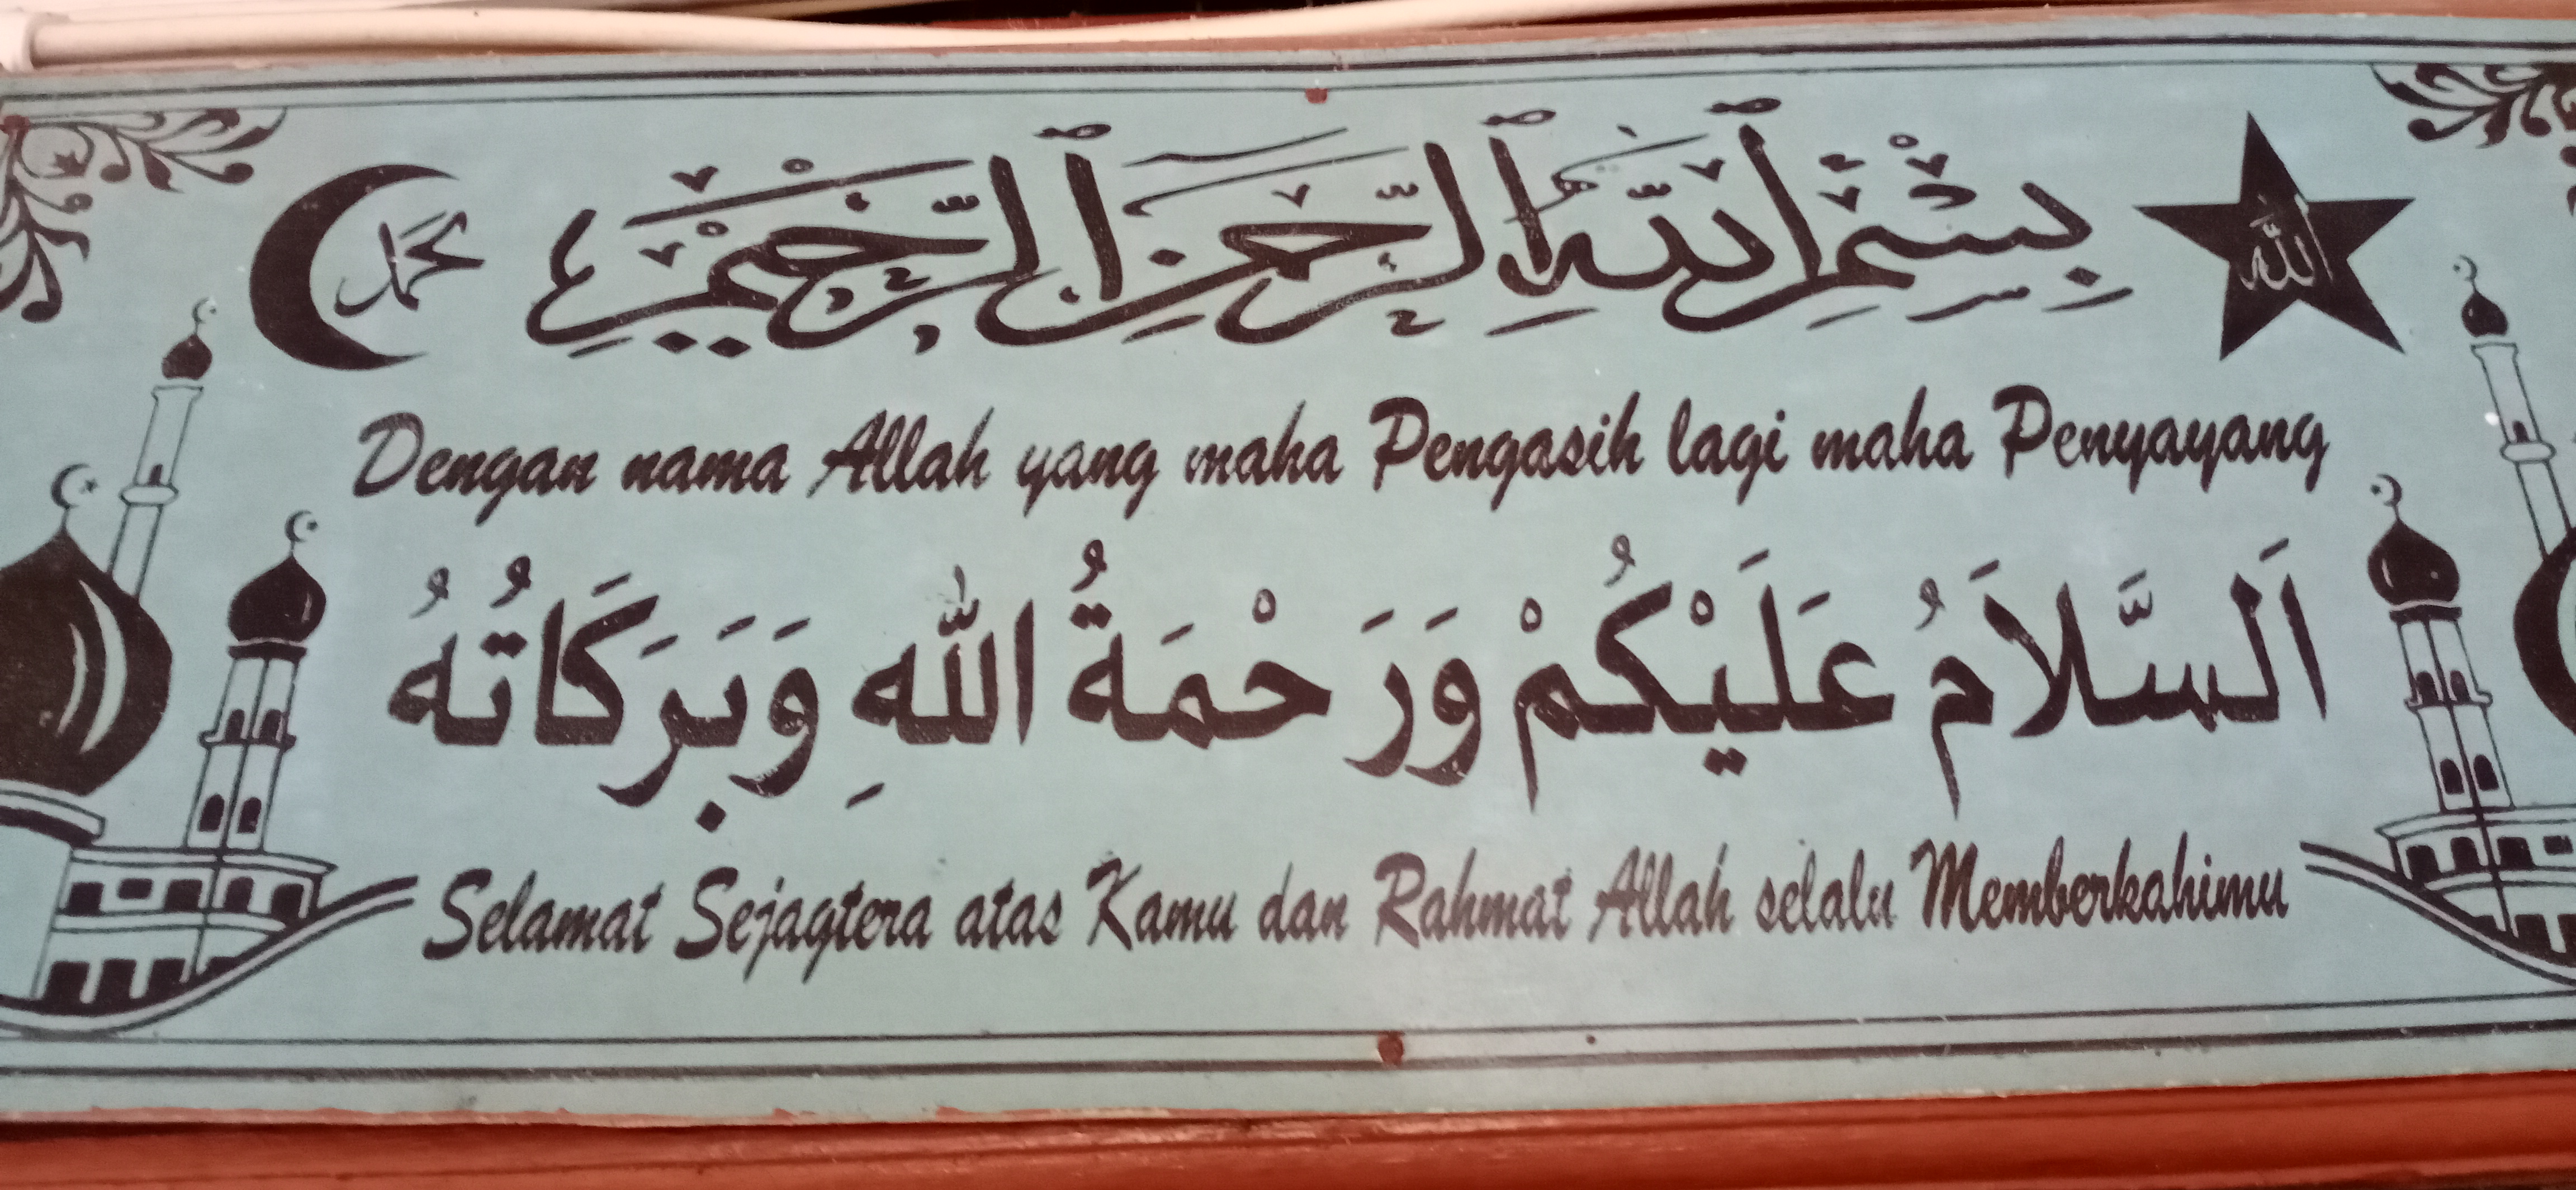 بِسْمِ ٱللَّهِ ٱلرَّحْمَٰنِ ٱلرَّحِيمِ
الله
محمد
Dengan nama Allah yang maha Pengasih lagi maha Penyayang
اَلسَّلاَمُ عَلَيْكُمْ وَرَحْمَةُ اللهِ وَبَرَكَاتُهُ
Selamat Sejagtera atas Kamu dan Rahmat Allah selalu Memberkahimu